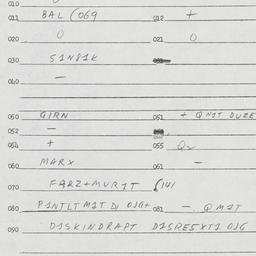 010
011 BAL (069 012 +
020 0 021 0
030 S1N81K
—
040
050 GIRN 051 + QM1T DUZE
052 —
054 + 055 Qv
060 MARX 061 —
070 FARZ+MUR1T (141
080 P1NTLT M1T DJ OJG+ 081 — QM1T
090 D1SKINDRAPT D1SRE5XT1 OJG